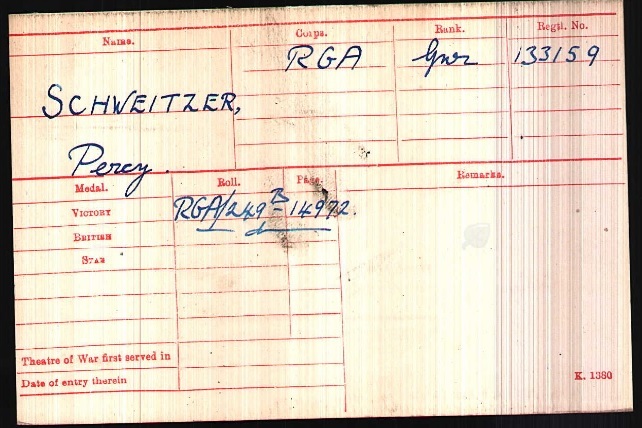 Name. Corps. Rank. Regtl. No.
RGA Gnr 133159
SCHWEITZER,
Percy.
Medal. Roll. Page. Remarks.
VICTORY RGA/249B - 14972.
BRITISH do
STAR
Theatre of War first served in
Date of entry therein
K. 1380